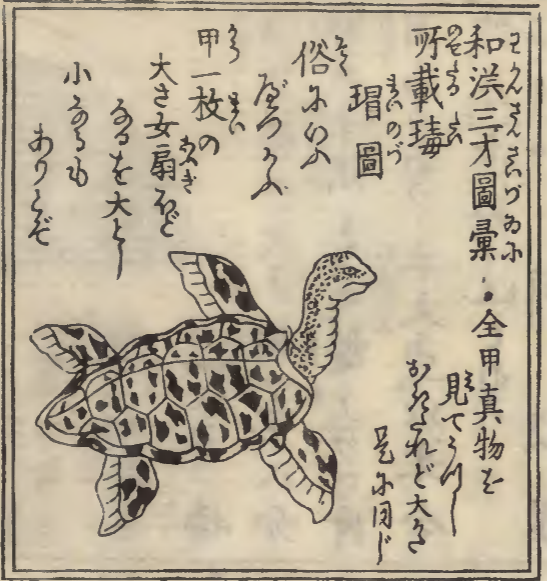 和漢三才圖彙
所載瑇
瑁圖
俗にいふ
べつかふ
甲一枚の
大さ女扇ほど
なるを大とし
小なるも
ありとぞ
全甲真物を
見てうつし
おきたれど大かた
是に同じ